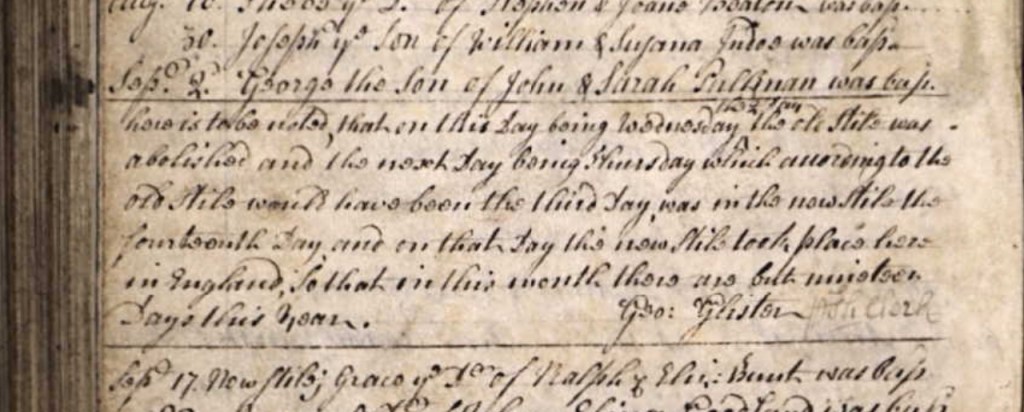 Aug. 10. of Stephen & Joane was bap.
30. Joseph ye Son of William & Susana Judoe was bap.
Sepr. 2. George the Son of John & Sarah Pulliman was bap.
here is to be noted, that on this Day being Wednesday the 2d the old Stile was
abolished and the next Day being Thursday which according to the
old Stile would have been the third Day, was in the new Stile the
fourteenth Day, and on that Day the new Stile took place here
in England, so that in this month there are but nineteen
Days this Year. Geo: Glister Clerk
Sepr. 17. New Stile; Grace ye Dr of Ralph & Eliz: Bunt was bap